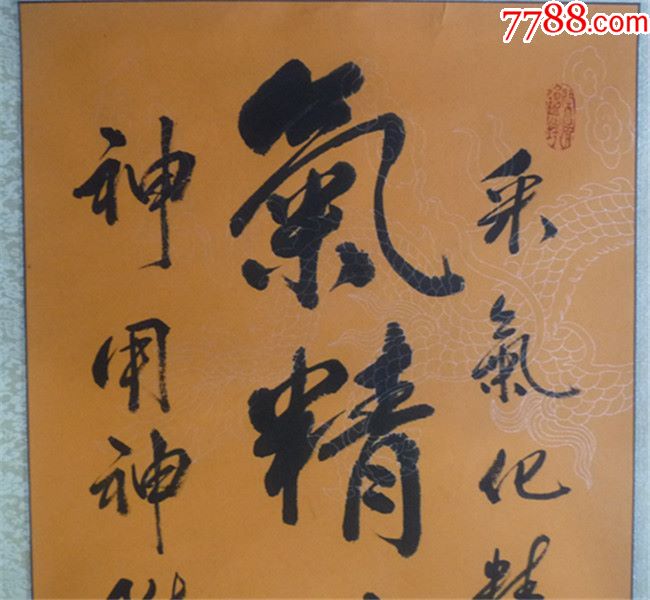 7788.com
采氣化精
氣精
神用神